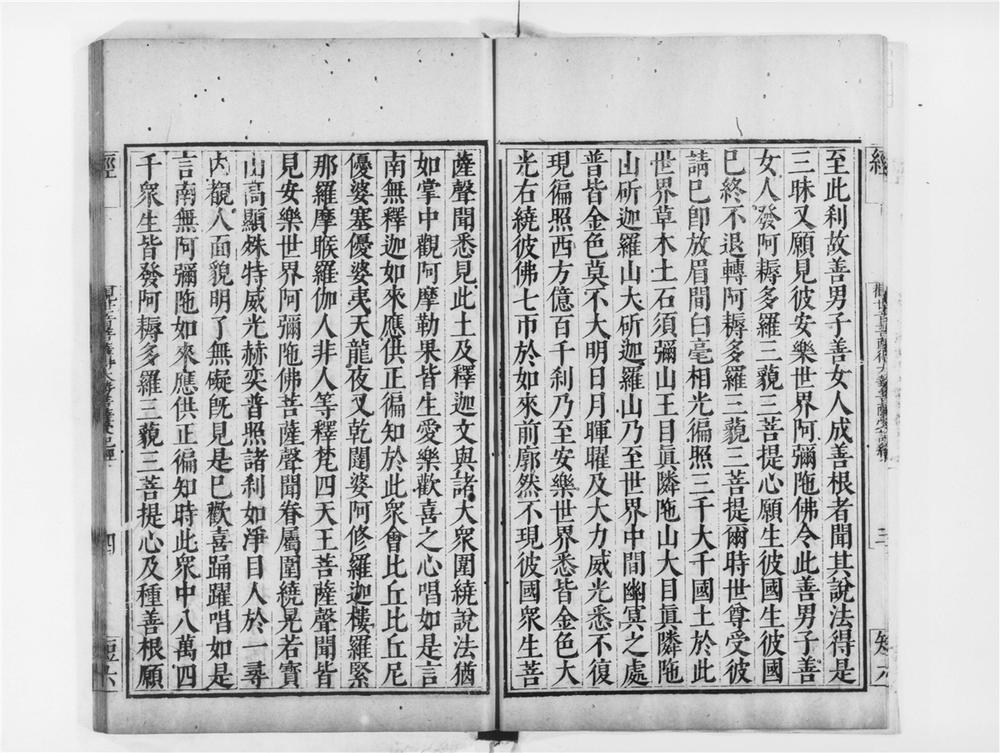 至此利故善男子善女人成善根者聞其說法得是
三昧又願見彼安樂世界阿彌陁佛令此善男子善
女人發阿耨多羅三藐三菩提心願生彼國生彼國
已終不退轉阿耨多羅三藐三菩提爾時世尊受彼
請已卽放眉間白毫相光徧照三千大千國土於此
世界草木土石須彌山王目眞隣陁山大目眞隣陁
山斫迦羅山大斫迦羅山乃至世界中間幽冥之處
普皆金色莫不大明日月暉曜及大力威光悉不復
現徧照西方億百千刹乃至安樂世界悉皆金色大
光右繞彼佛七帀於如來前廓然不現彼國衆生菩
經
三
短六
薩聲聞悉見此土及釋迦文與諸大衆圍繞說法猶
如掌中觀阿摩勒果皆生愛樂歡喜之心唱如是言
南無釋迦如來應供正徧知於此衆會比丘比丘尼
優婆塞優婆夷天龍夜叉乾闥婆阿修羅迦樓羅緊
那羅摩睺羅伽人非人等釋梵四天王菩薩聲聞皆
見安樂世界阿彌陁佛菩薩聲聞眷屬圍繞晃若寶
山高顯殊特威光赫奕普照諸刹如淨目人於一尋
內覩人面貌明了無礙旣見是已歡喜踊躍唱如是
言南無阿彌陁如來應供正徧知時此衆中八萬四
千衆生皆發阿耨多羅三藐三菩提心及種善根願
經
四
短六